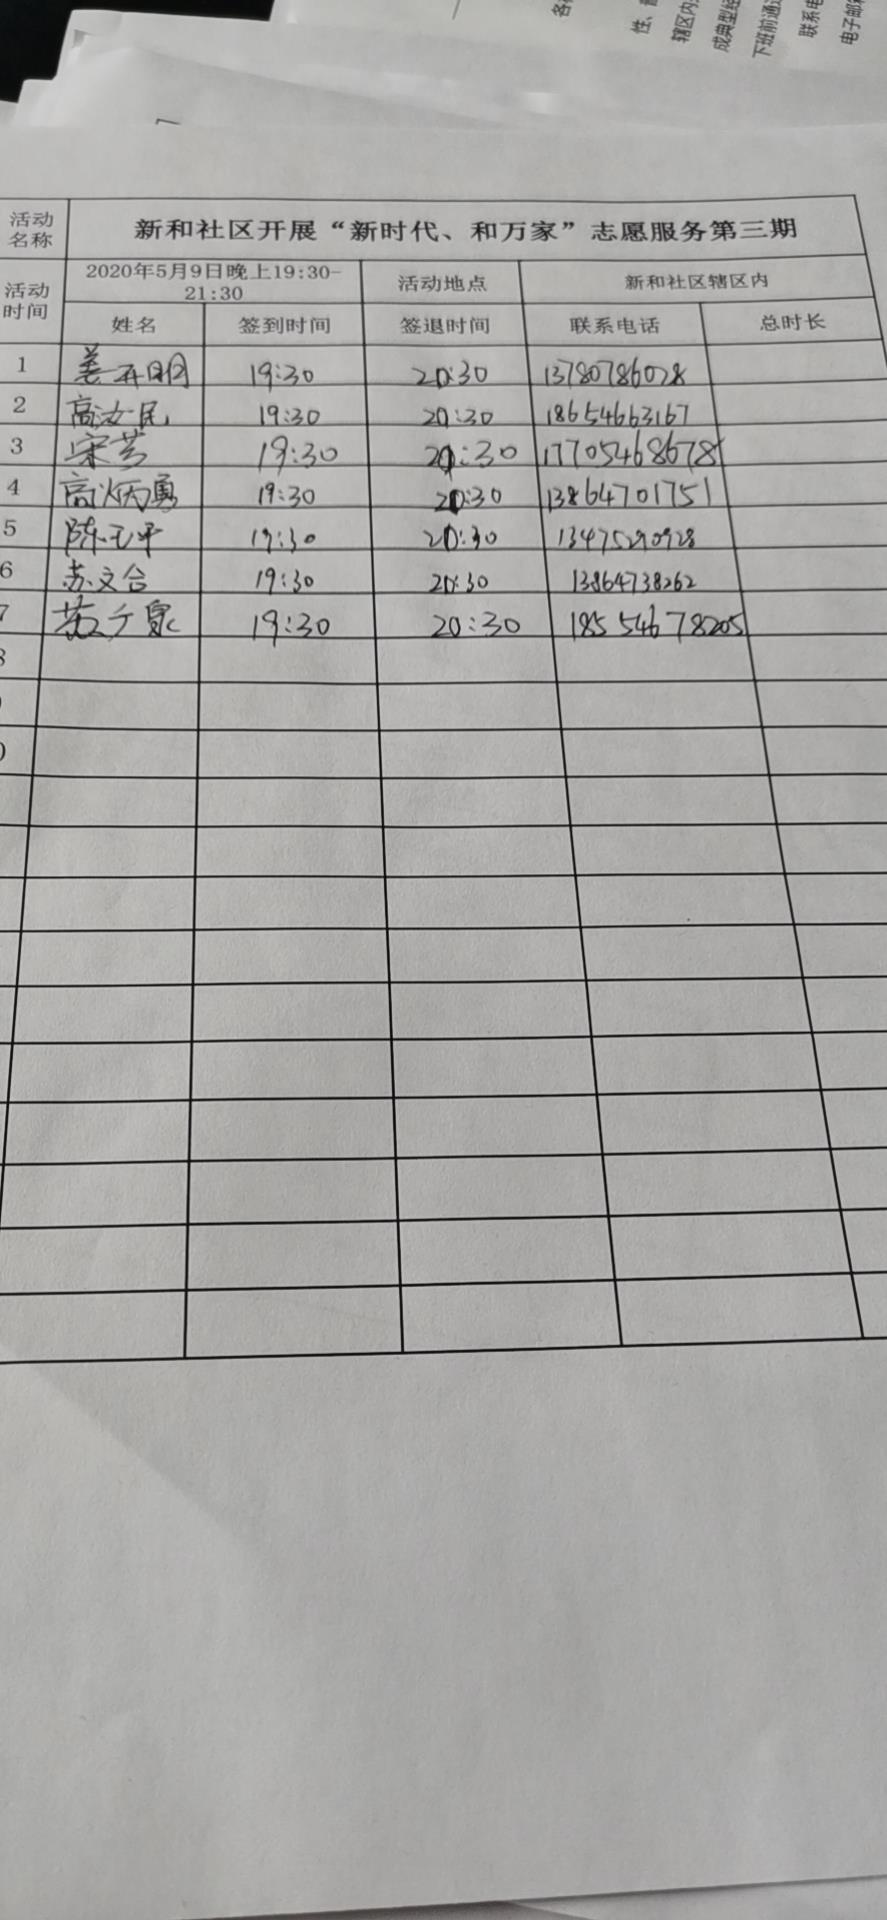 各
性、
辖区内
成典型经
下班前通过
联系电
电子邮
活动名称 新和社区开展“新时代、和万家”志愿服务第三期
活动时间 2020年5月9日晚上19:30-21:30 活动地点 新和社区辖区内
姓名 签到时间 签退时间 联系电话 总时长
1 姜开明 19:30 20:30 13780786028
2 高汝民 19:30 20:30 18654663167
3 宋芳 19:30 20:30 17705468678
4 高炳勇 19:30 20:30 13864701751
5 陈玉平 19:30 20:30 13475290928
6 苏文合 19:30 20:30 13864738262
7 19:30 20:30 18554678205
8